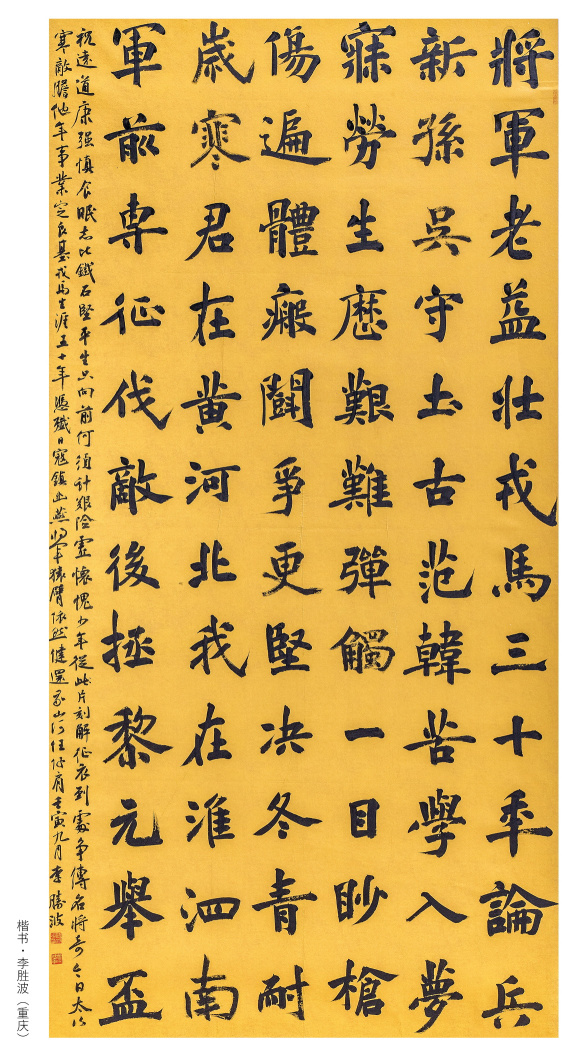 將軍老益壯戎馬三十秊論兵
新孫吳守土古范韓苦學入夢
寐勞生歷艱難彈觸一目眇槍
傷遍體瘢鬪爭更堅决冬青耐
歲寒君在黃河北我在淮泗南
軍前専征伐敵後拯黎元舉盃
祝遠道康强慎食眠志比鐵石堅平生只向前何須計艱險虛懷愧少年從此片刻解征衣到處爭傳名將奇今日太行
寒敵膽他年事業定良基戎馬生涯五十年憑殲日寇鎮幽燕將軍猿臂依然健還我山河任仔肩壬寅九月李勝波
楷书·李胜波（重庆）